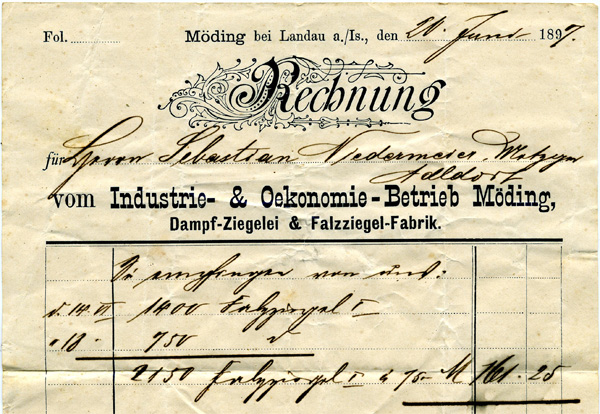 Fol. Möding bei Landau a./Is., den 20. Juni 1897.
Rechnung
für Herrn Sebastian Niedermeier, Metzger
Adldorf
vom Industrie- & Oekonomie-Betrieb Möding,
Dampf-Ziegelei & Falzziegel-Fabrik.
Sie empfingen von uns:
d. 14. VI 1400 Falzziegel I
" 18 " 750 d
2150 Falzziegel I à 75.- M 161.25